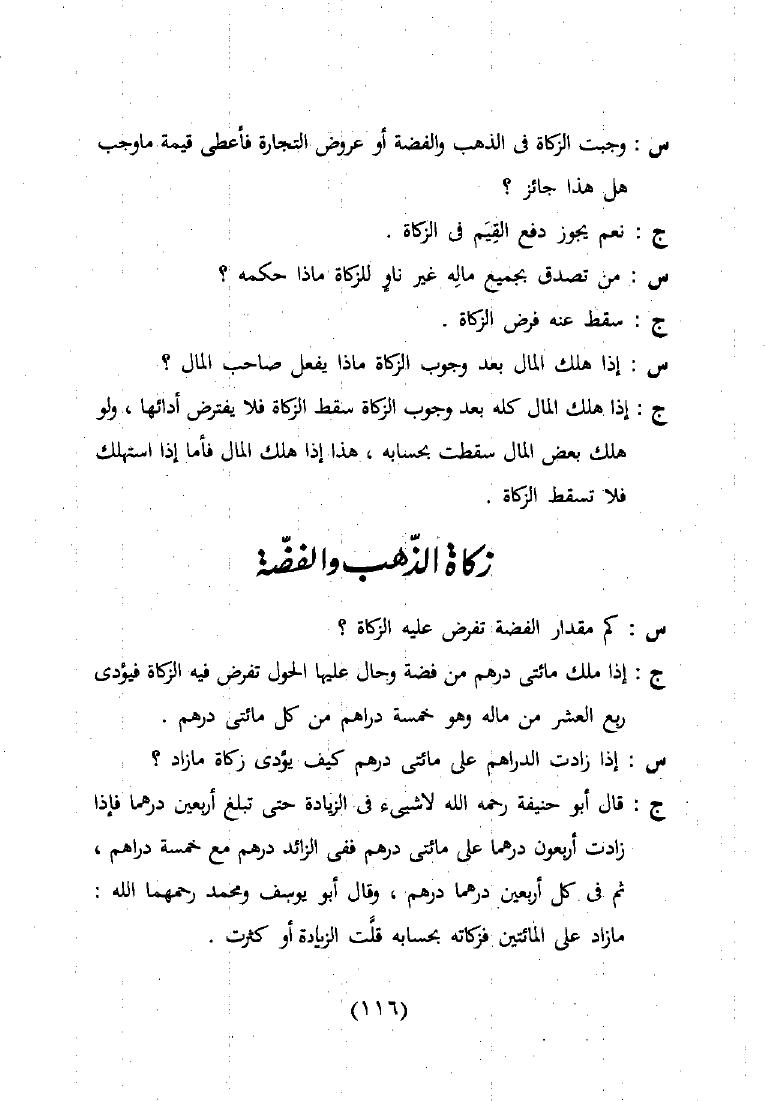 س : وجبت الزكاة فى الذهب والفضة أو عروض التجارة فأعطى قيمة ماوجب
هل هذا جائز ؟
ج : نعم يجوز دفع القِيَم فى الزكاة .
س : من تصدق بجميع مالِه غير ناوٍ للزكاة ماذا حكمه ؟
ج : سقط عنه فرض الزكاة .
س : إذا هلك المال بعد وجوب الزكاة ماذا يفعل صاحب المال ؟
ج : إذا هلك المال كله بعد وجوب الزكاة سقط الزكاة فلا يفترض أدائها ، ولو
هلك بعض المال سقطت بحسابه ، هذا إذا هلك المال فأما إذا استهلك
فلا تسقط الزكاة .
زكاة الذّهب والفضّة
س : كم مقدار الفضة تفرض عليه الزكاة ؟
ج : إذا ملك مائتى درهم من فضة وحال عليها الحول تفرض فيه الزكاة فيؤدى
ربع العشر من ماله وهو خمسة دراهم من كل مائتى درهم .
س : إذا زادت الدراهم على مائتى درهم كيف يؤدى زكاة مازاد ؟
ج : قال أبو حنيفة رحمه الله لاشيىء فى الزيادة حتى تبلغ أربعين درهما فإذا
زادت أربعون درهما على مائتى درهم ففى الزائد درهم مع خمسة دراهم ،
ثم فى كل أربعين درهما درهم ، وقال أبو يوسف ومحمد رحمهما الله :
مازاد على المائتين فزكاته بحسابه قلَّت الزيادة أو كثرت .
(١١٦)